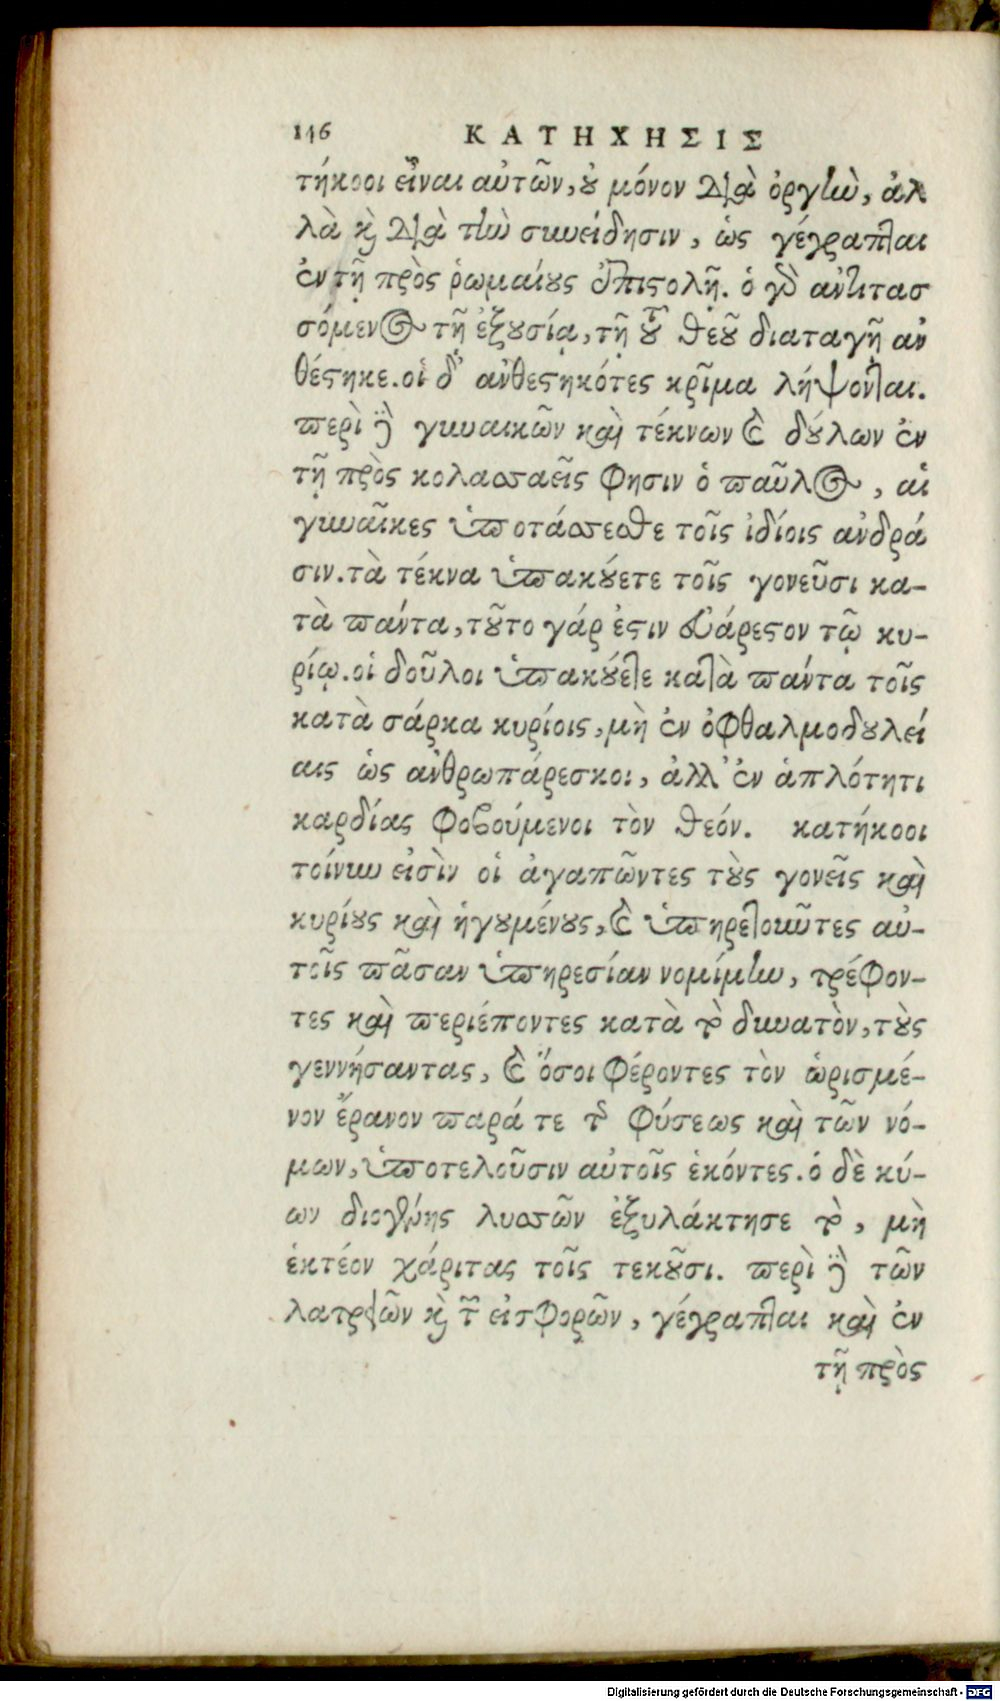 146 ΚΑΤΗΧΗΣΙΣ
τήκοοι εἶναι αὐτῶν, οὐ μόνον διὰ ὀργὴν, ἀλ
λὰ καὶ διὰ τὴν συνείδησιν, ὡς γέγραπται
ἐν τῇ πρὸς ῥωμαίους ἐπιστολῇ. ὁ γὰρ ἀντιτασ
σόμενος τῇ ἐξουσίᾳ, τῇ τοῦ θεοῦ διαταγῇ ἀν
θέστηκε. οἱ δ' ἀνθεστηκότες κρῖμα λήψονται.
περὶ δὲ γυναικῶν καὶ τέκνων καὶ δούλων ἐν
τῇ πρὸς κολασσαεῖς φησιν ὁ παῦλος, αἱ
γυναῖκες ὑποτάσσεσθε τοῖς ἰδίοις ἀνδρά
σιν. τὰ τέκνα ὑπακούετε τοῖς γονεῦσι κα-
τὰ πάντα, τοῦτο γάρ ἐστιν εὐάρεστον τῷ κυ-
ρίῳ. οἱ δοῦλοι ὑπακούετε κατὰ πάντα τοῖς
κατὰ σάρκα κυρίοις, μὴ ἐν ὀφθαλμοδουλεί
αις ὡς ἀνθρωπάρεσκοι, ἀλλ' ἐν ἁπλότητι
καρδίας φοβούμενοι τὸν θεόν. κατήκοοι
τοίνυν εἰσὶν οἱ ἀγαπῶντες τοὺς γονεῖς καὶ
κυρίους καὶ ἡγουμένους, καὶ ὑπηρετοῦντες αὐ-
τοῖς πᾶσαν ὑπηρεσίαν νομίμην, τρέφον-
τες καὶ περιέποντες κατὰ τὸ δυνατὸν, τοὺς
γεννήσαντας, καὶ ὅσοι φέροντες τὸν ὡρισμέ-
νον ἔρανον παρά τε τῆς φύσεως καὶ τῶν νό-
μων, ὑποτελοῦσιν αὐτοῖς ἑκόντες. ὁ δὲ κύ-
ων διογένης λυσσῶν ἐξυλάκτησε τὸ, μὴ
ἑκτέον χάριτας τοῖς τεκοῦσι. περὶ δὲ τῶν
λατρειῶν καὶ τῶν εἰσφορῶν, γέγραπται καὶ ἐν
τῇ πρὸς
Digitalisierung gefördert durch die Deutsche Forschungsgemeinschaft - DFG